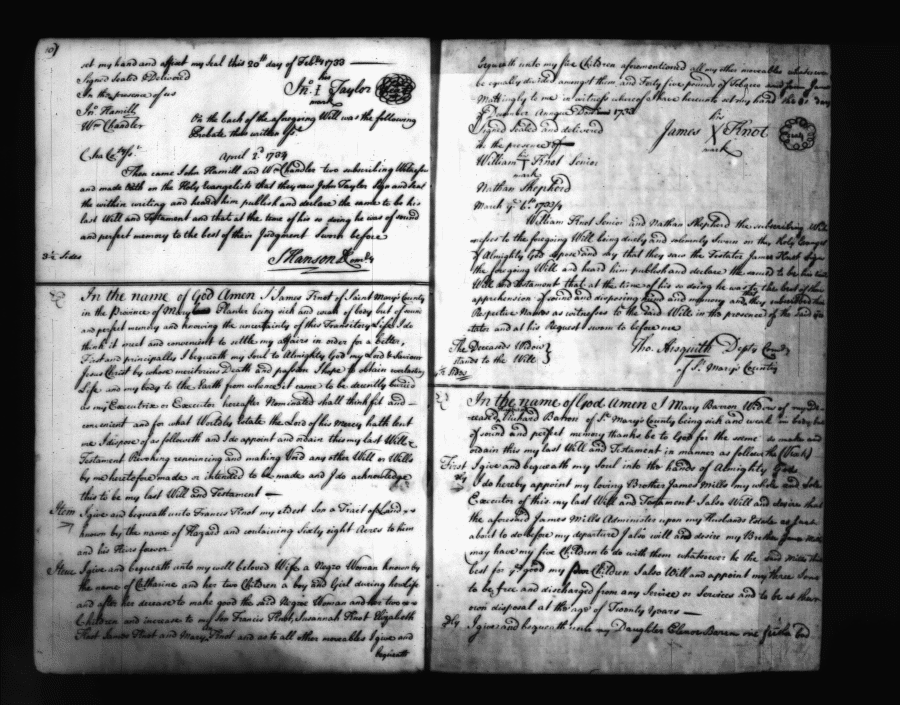 10)
set my hand and affixt my seal this 20th day of Febry 1733
Signed Sealed & Delivered
In the presence of us
Jno. Hamill
Wm Chandler
his
Jno. I Taylor
mark
On the back of the aforegoing Will was the following
Probate thus written Vizt
Cha Coty Ss.
April 2d. 1734
Then came John Hamill and Wm Chandler two subscribing Witnesses
and made Oath on the Holy Evangelists that they saw John Taylor Sign and Seal
the within writing and heard him publish and declare the same to be his
last Will and Testament and that at the time of his so doing he was of sound
and perfect memory to the best of their Judgment Sworn before
3¼ Sides
S Hanson D Comry
In the name of God Amen I James Knot of Saint Mary's County
in the Province of Planter being sick and weak of body but of mind
and perfect memory and knowing the uncertainty of this Transitory Life I do
think it meet and convenient to settle my affairs in order for a better,
First and principally I bequeath my Soul to Almighty God my Lord & Saviour
Jesus Christ by whose meritorius Death and passion I hope to obtain everlasting
Life and my body to the Earth from whence it came to be decently buried
as my Executrix or Executor hereafter Nominated shall think fit and
convenient and for what Worldly Estate the Lord of his Mercy hath lent
me I dispose of as followeth and I do appoint and ordain this my last Will &
Testament Revoking renouncing and making Void any other Will or Wills
by me heretofore made or intended to be made and I do acknowledge
this to be my last Will and Testament
Item I give and bequeath unto Francis Knot my Eldest Son a Tract of Land
known by the name of Hazard and containing Sixty eight Acres to him
and his Heirs forever
Item I give and bequeath unto my well beloved Wife a Negro Woman known by
the name of Catharine and her two Children a boy and Girl during her Life
and after her decease to make good the said Negroe Woman and her two
Children and increase to my Son Francis Knot, Susannah Knot Elizabeth
Knot James Knot and Mary Knot and as to all other moveables I give and
bequeath
bequeath unto my five Children aforementioned all my other moveables whatsoever
be equally divided amongst them and Forty five pounds of Tobacco
Mattingly to me in witness whereof I have hereunto set my hand the day
of December Anno Dom. 1733
Signed Sealed and delivered
in the presence of
his
William Knot Senior
mark
Nathan Shepherd
his
James X Knot
mark
March ye 6th. 1733/4
William Knot Senior and Nathan Shepherd the subscribing Wit
nesses to the foregoing Will being duely and solemnly Sworn on the Holy Evangels
of Almighty God depose and say that they saw the Testator James Knot Sign
the foregoing Will and heard him publish and declare the same to be his last
Will and Testament that at the time of his so doing he was to the best of their
apprehension of sound and disposing mind and memory and they subscribed their
Respective Names as witnesses to the said Will in the presence of the said Tes
tator and at his Request sworn to before me
The Deceased's Widow
stands to the Will
Tho. Aisquith Depty Comry
of St. Mary's County
Sides
In the name of God Amen I Mary Barron Widow of my de
ceased Richard Barron of St. Mary's County being sick and weak in body but
of sound and perfect memory thanks be to God for the same do make and
ordain this my last Will and Testament in manner as followeth (Vizt)
First I give and bequeath my Soul into the hands of Almighty God
I do hereby appoint my loving Brother James Mills my whole and Sole
Executor of this my last Will and Testament I also Will and desire that
the aforesaid James Mills Administer upon my Husbands Estate as I was
about to do before my departure I also will and desire my Brother James Mills
may have my five Children to do with them whatsoever he the said Mills think
best for ye good my Children I also Will and appoint my three Sons
to be free and discharged from any Service or Services and to be at their
own disposal at the age of Twenty Years
I give and bequeath unto my Daughter Elenor Baron one feather bed